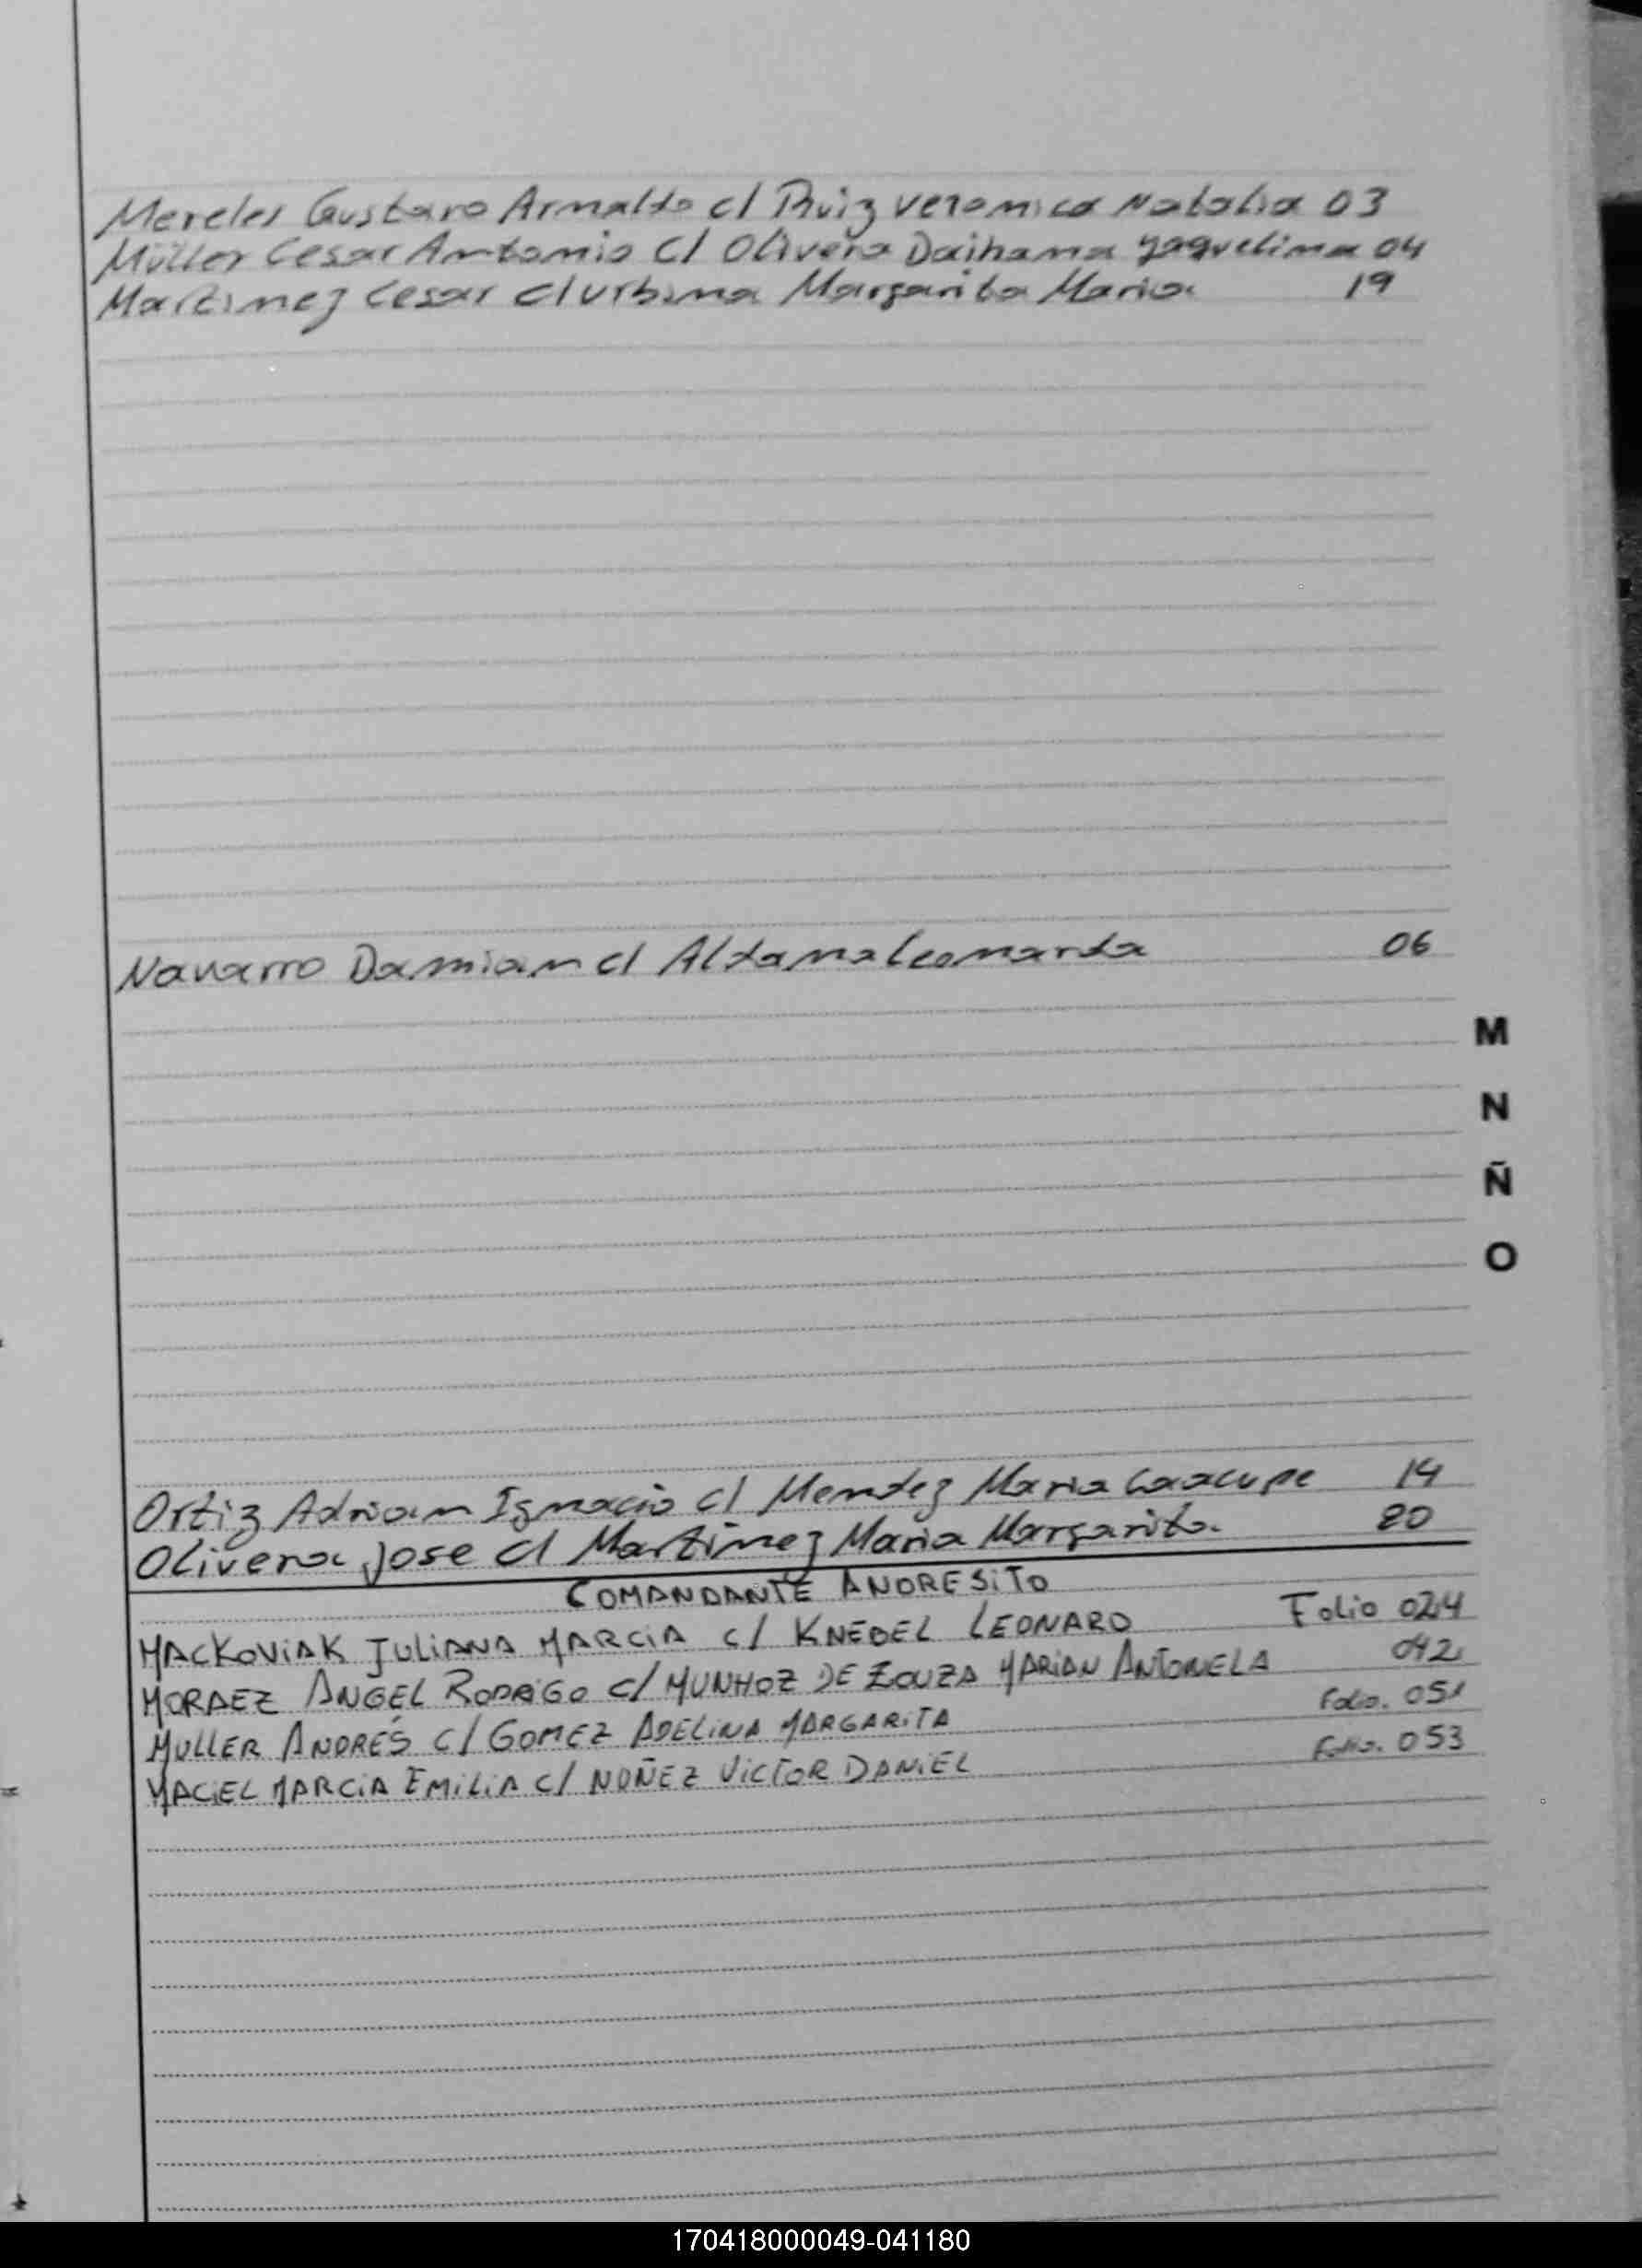 Mereles Gustavo Arnaldo c/ Ruiz Veronica Natalia 03
Müller Cesar Antonio c/ Olivera Daihana Yaquelina 04
Martinez Cesar c/ Urbina Margarita Maria 19
Navarro Damian c/ Aldama Leonarda 06
M
N
Ñ
O
Ortiz Adrian Ignacio c/ Mendez Maria Caacupe 14
Olivera Jose c/ Martinez Maria Margarita. 20
COMANDANTE ANDRESITO
MACKOVIAK JULIANA MARCIA c/ KNEBEL LEONARD Folio 024
MORAEZ ANGEL RODRIGO c/ MUNHOZ DE ZOUZA MARIAN ANTONELA 042
MULLER ANDRÉS c/ GOMEZ ADELINA MARGARITA Folio. 051
MACIEL MARCIA EMILIA c/ NUÑEZ VICTOR DANIEL Folio. 053
170418000049-041180